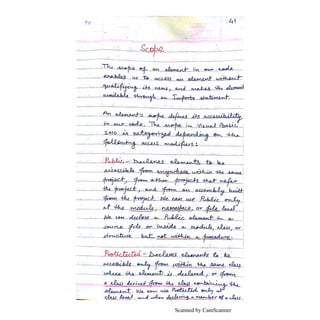 41
Scope
The scope of an element in our code
enables us to access an element without
qualifying its name, and makes the element
available through an Imports statement.
An element's scope defines its accessibility
in our code. The scope in Visual Basic
2010 is categorized depending on the
following access modifiers:
Public - Declares elements to be
accessible from anywhere within the same
project, from other projects that refer
the project, and from an assembly built
from the project. We can use Public only
at the module, namespace, or file level.
We can declare a Public element in a
source file or inside a module, class, or
structure but not within a procedure.
Protected - Declares elements to be
accessible only from within the same class
where the element is declared, or from
a class derived from the class containing the
element. We can use Protected only at
class level and when declaring a member of a class.
Scanned by CamScanner